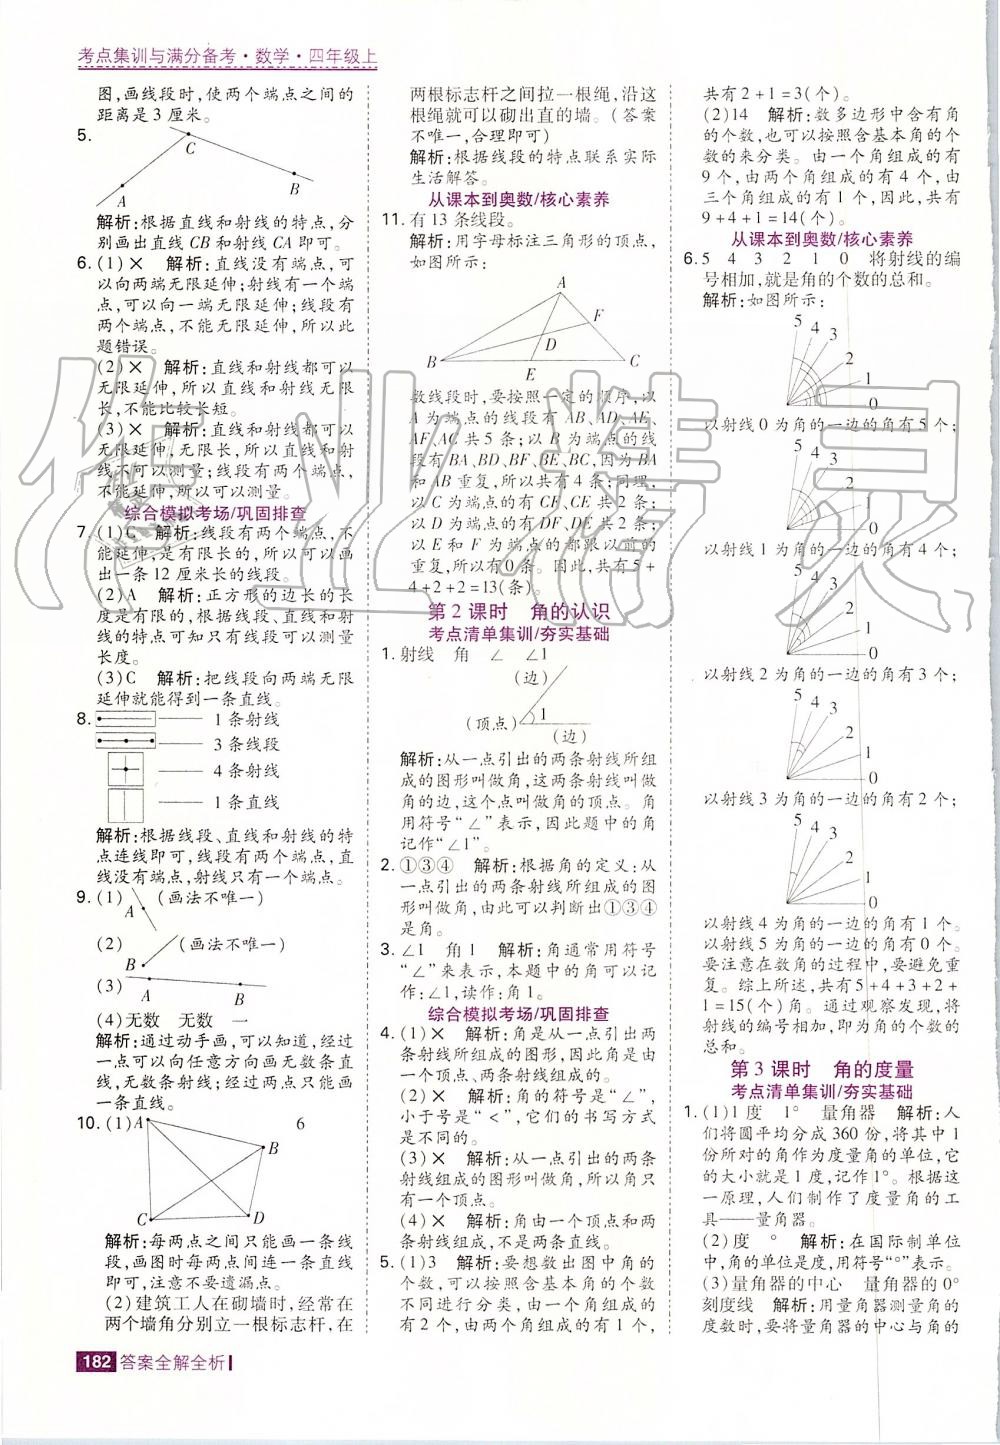 考点集训与满分备考·数学·四年级上
图,画线段时,使两个端点之间的
距离是3厘米。
5.
C
B
A
解析:根据直线和射线的特点,分
别画出直线CB和射线CA即可。
6.(1)× 解析:直线没有端点,可
以向两端无限延伸;射线有一个端
点,可以向一端无限延伸;线段有
两个端点,不能无限延伸,所以此
题错误。
(2)× 解析:直线和射线都可以
无限延伸,所以直线和射线无限
长,不能比较长短。
(3)× 解析:直线和射线都可以
无限延伸,无限长,所以直线和射
线不可以测量;线段有两个端点,
不能延伸,所以可以测量。
综合模拟考场/巩固排查
7.(1)C 解析:线段有两个端点,不
能延伸,是有限长的,所以可以画
出一条12厘米长的线段。
(2)A 解析:正方形的边长的长
度是有限的,根据线段、直线和射
线的特点可知只有线段可以测量
长度。
(3)C 解析:把线段向两端无限
延伸就能得到一条直线。
8.
1条射线
3条线段
4条射线
1条直线
解析:根据线段、直线和射线的特
点连线即可,线段有两个端点,直
线没有端点,射线只有一个端点。
9.(1) A (画法不唯一)
(2) B (画法不唯一)
(3) A B
(4)无数 无数 一
解析:通过动手画,可以知道,经过
一点可以向任意方向画无数条直
线,无数条射线;经过两点只能画
一条直线。
10.(1) 6
A
B
C
D
解析:每两点之间只能画一条线
段,画图时每两点间连一条直线
即可,注意不要遗漏点。
(2)建筑工人在砌墙时,经常在
两个墙角分别立一根标志杆,在
182 答案全解全析
两根标志杆之间拉一根绳,沿这
根绳就可以砌出直的墙。(答案
不唯一,合理即可)
解析:根据线段的特点联系实际
生活解答。
从课本到奥数/核心素养
11.有13条线段。
解析:用字母标注三角形的顶点,
如图所示:
A
F
D
B
E
C
数线段时,要按照一定的顺序,以
A为端点的线段有AB、AD、AE、
AF、AC共5条;以B为端点的线
段有BA、BD、BF、BE、BC,因为BA
和AB重复,所以共有4条;同理,
以C为端点的有CF、CE共2条;
以D为端点的有DF、DE共2条;
以E和F为端点的都跟以前的
重复,所以有0条。因此,共有5+
4+2+2=13(条)。
第2课时 角的认识
考点清单集训/夯实基础
1.射线 角 ∠ ∠1
(边)
(顶点) 1
(边)
解析:从一点引出的两条射线所组
成的图形叫做角,这两条射线叫做
角的边,这个点叫做角的顶点。角
用符号“∠”表示,因此题中的角
记作“∠1”。
2.①③④ 解析:根据角的定义:从
一点引出的两条射线所组成的图
形叫做角,由此可以判断出①③④
是角。
3.∠1 角1 解析:角通常用符号
“∠”来表示,本题中的角可以记
作:∠1,读作:角1。
综合模拟考场/巩固排查
4.(1)× 解析:角是从一点引出两
条射线所组成的图形,因此角是由
一个顶点和两条射线组成的。
(2)× 解析:角的符号是“∠”,
小于号是“<”,它们的书写方式
是不同的。
(3)× 解析:从一点引出的两条
射线组成的图形叫做角,所以角只
有一个顶点。
(4)× 解析:角由一个顶点和两
条射线组成,不是两条直线。
5.(1)3 解析:要想数出图中角的
个数,可以按照含基本角的个数
不同进行分类,由一个角组成的
有2个,由两个角组成的有1个,
共有2+1=3(个)。
(2)14 解析:数多边形中含有角
的个数,也可以按照含基本角的个
数的来分类。由一个角组成的有
9个,由两个角组成的有4个,由
三个角组成的有1个,因此,共有
9+4+1=14(个)。
从课本到奥数/核心素养
6.5 4 3 2 1 0 将射线的编
号相加,就是角的个数的总和。
解析:如图所示:
5
4
3
2
1
0
以射线0为角的一边的角有5个;
5
4
3
2
1
0
以射线1为角的一边的角有4个;
5
4
3
2
1
0
以射线2为角的一边的角有3个;
5
4
3
2
1
0
以射线3为角的一边的角有2个;
5
4
3
2
1
0
以射线4为角的一边的角有1个。
以射线5为角的一边的角有0个。
要注意在数角的过程中,要避免重
复。综上所述,共有5+4+3+2+
1=15(个)角。通过观察发现,将
射线的编号相加,即为角的个数的
总和。
第3课时 角的度量
考点清单集训/夯实基础
1.(1)1度 1° 量角器 解析:人
们将圆平均分成360份,将其中1
份所对的角作为度量角的单位,它
的大小就是1度,记作1°。根据这
一原理,人们制作了度量角的工
具——量角器。
(2)度 ° 解析:在国际制单位
中,角的单位是度,用符号“°”表示。
(3)量角器的中心 量角器的0°
刻度线 解析:用量角器测量角的
度数时,要将量角器的中心与角的
作业精灵